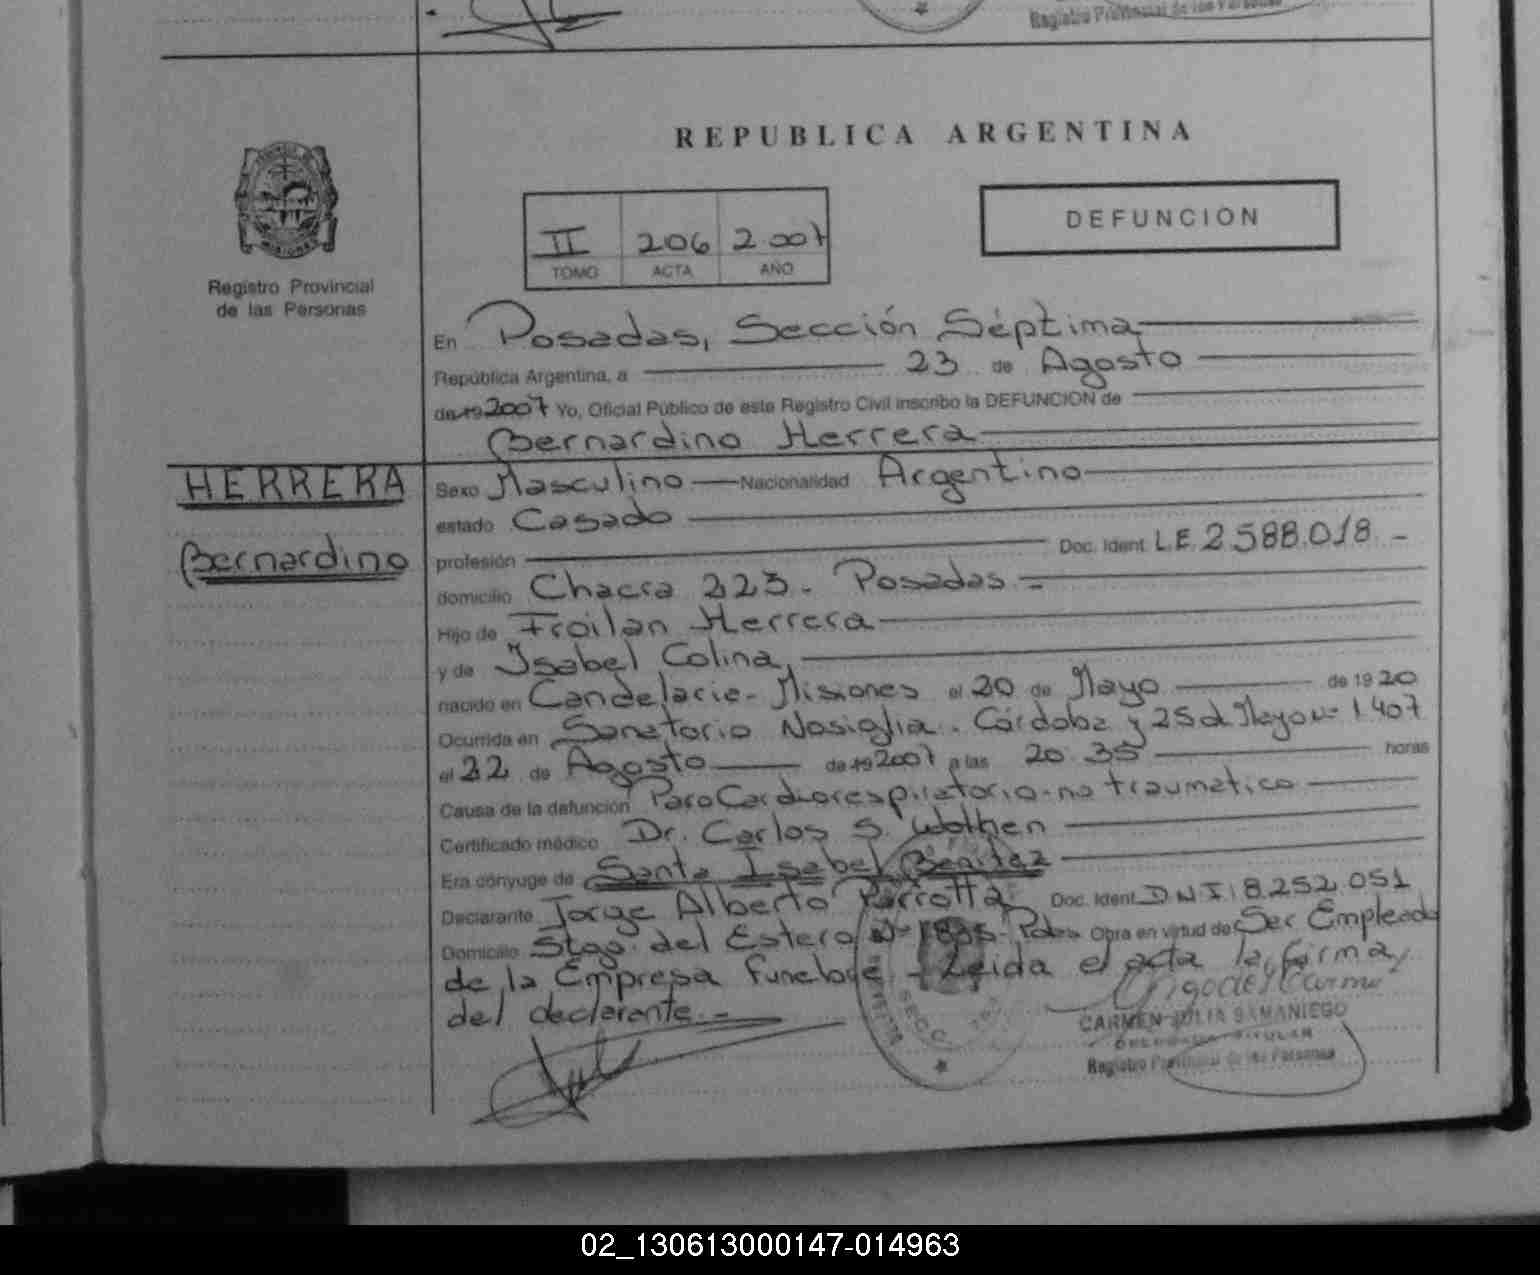 Registro Provincial de las Personas
REPUBLICA ARGENTINA
II 206 2.007
TOMO ACTA AÑO
DEFUNCION
Registro Provincial
de las Personas
En Posadas, Sección Séptima
República Argentina, a 23 de Agosto
de 19 2007 Yo, Oficial Público de este Registro Civil inscribo la DEFUNCION de
Bernardino Herrera
HERRERA
Bernardino
Sexo Masculino Nacionalidad Argentino
estado Casado
profesión Doc. Ident. L.E. 2.588.018.-
domicilio Chacra 223. Posadas.-
Hijo de Froilan Herrera
y de Isabel Colina,
nacido en Candelaria- Misiones el 20 de Mayo de 1920
Ocurrida en Sanatorio Nosiglia. Córdoba y 25 d Mayo Nº 1407
el 22 de Agosto de 19 2007 a las 20.35 horas
Causa de la defunción Paro Cardiorespiratorio-no traumatico
Certificado médico Dr. Carlos S. Wolhen
Era cónyuge de Santa Isabel Benitez
Declarante Jorge Alberto Parrotta Doc. Ident. D.N.I. 8.252.051
Domicilio Stgo. del Estero Nº 1835- Pdas Obra en virtud de Ser Empleado
de la Empresa Funebre - Leida el acta la firma,
del declarante.-
CARMEN JULIA SAMANIEGO
DELEGADA TITULAR
Registro Provincial de las Personas
02_130613000147-014963